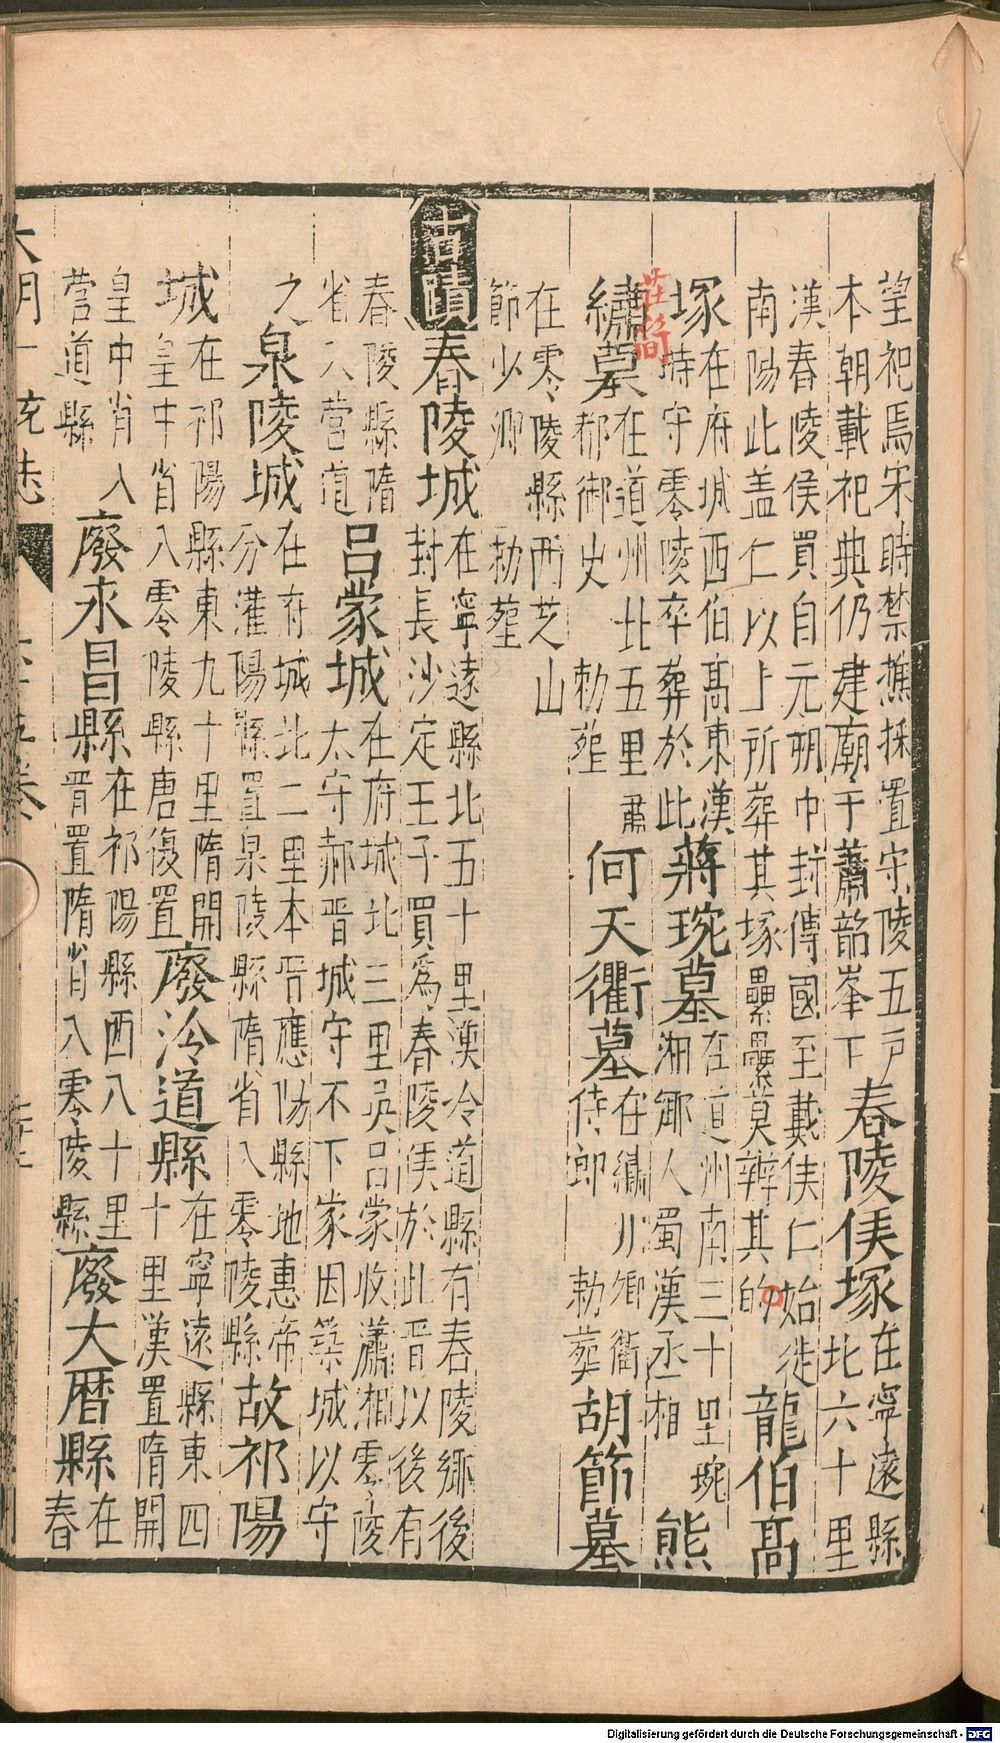 望祀焉宋時禁樵採置守陵五戶
本朝載祀典仍建廟于蕭韶峯下
春陵侯塚
在寧遠縣
北六十里
漢春陵侯買自元朔中封傳國至戴侯仁始徙
南陽此盖仁以上所葬其塚纍纍莫辨其的
龍伯高
塚
在府城西伯高東漢
時守零陵卒葬於此
蔣琬墓
在道州南三十里琬
湘鄉人蜀漢丞相
熊
莊簡
繡墓
在道州北五里肅
都御史 勅塟
何天衢墓
在繡川卿衢
侍郎 勅葬
胡節墓
在零陵縣西芝山
節少卿 勅塟
古蹟
春陵城
在寧遠縣北五十里漢泠道縣有春陵鄉後
封長沙定王子買爲春陵侯於此晋以後有
春陵縣隋
省入營道
吕蒙城
在府城北三里吳吕蒙收瀟湘零陵
太守郝晋城守不下家因築城以守
之
泉陵城
在府城北二里本晋應陽縣地惠帝
分灌陽縣置泉陵縣隋省入零陵縣
故祁陽
城
在祁陽縣東九十里隋開
皇中省入零陵縣唐復置
廢泠道縣
在寧遠縣東四
十里漢置隋開
皇中省入
營道縣
廢永昌縣
在祁陽縣西八十里
晋置隋省入零陵縣
廢大曆縣
在
春
大明一統志
六十五卷
Digitalisierung gefördert durch die Deutsche Forschungsgemeinschaft - DFG